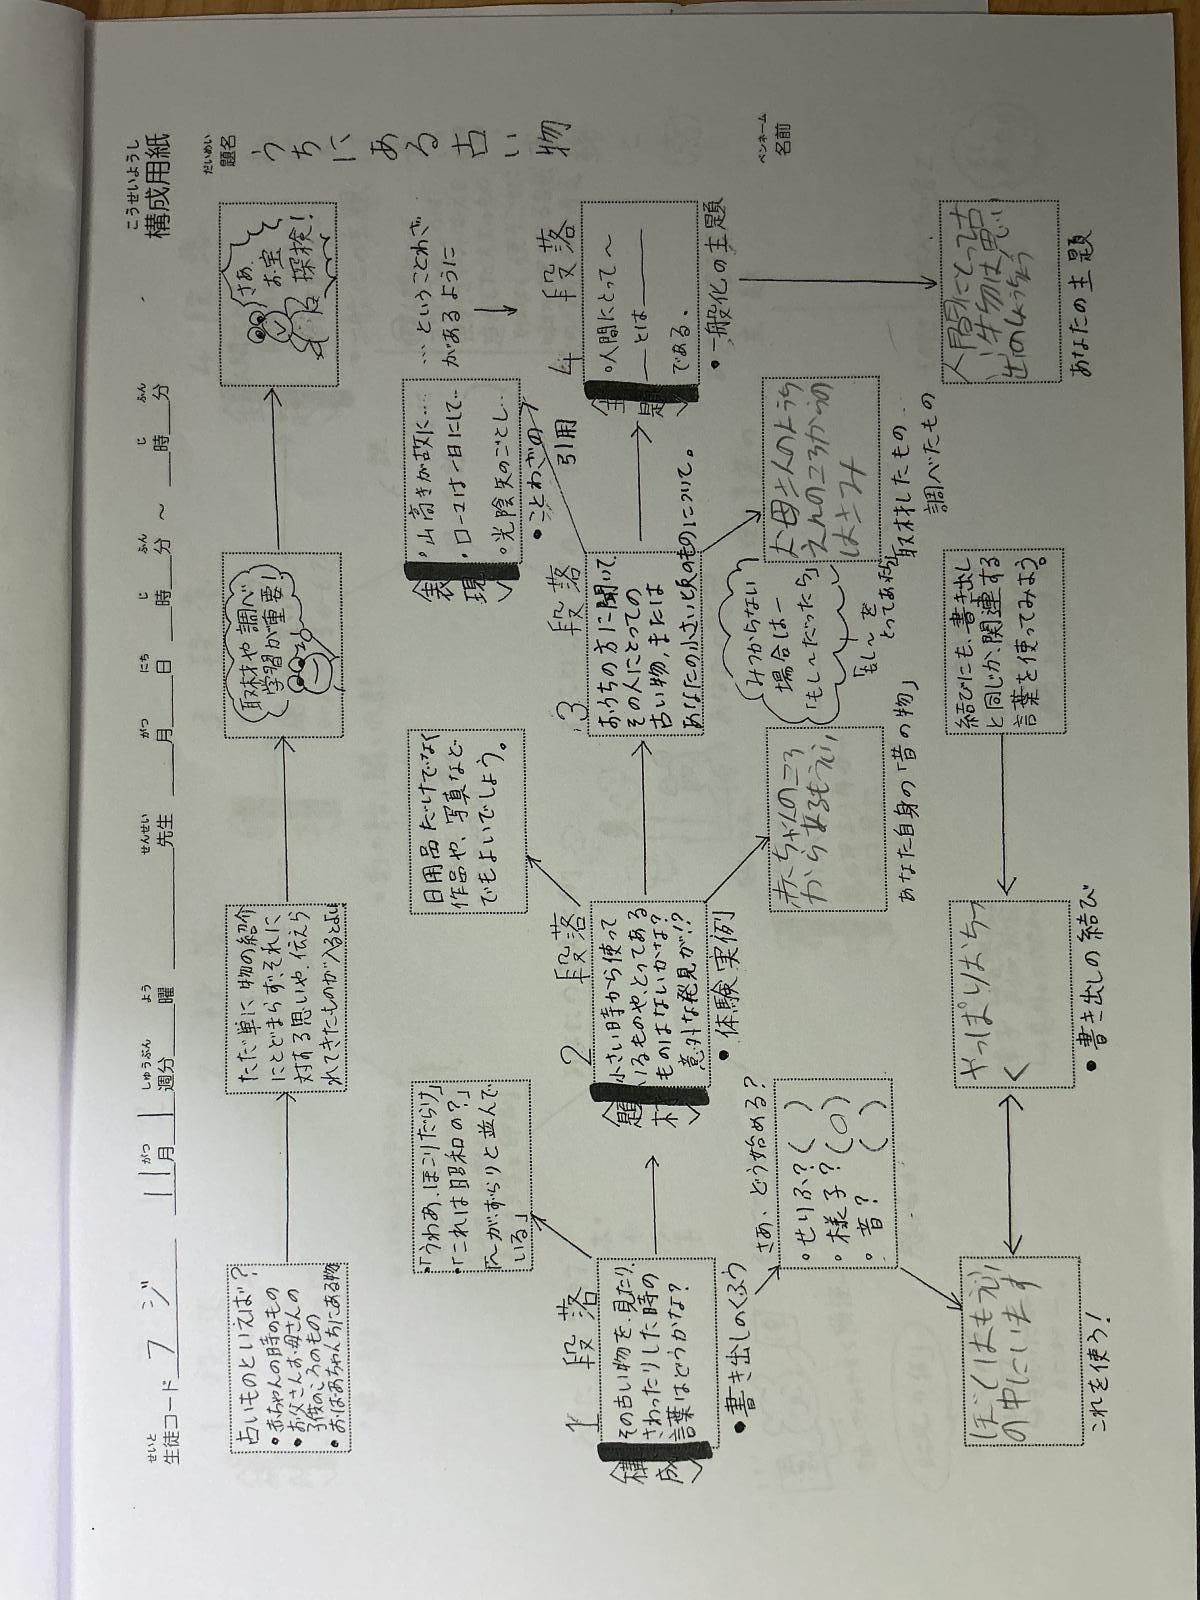 こうせいようし
構成用紙
せいと
生徒コード フジ
11月1週分 曜 先生 月 日 時 分 ～ 時 分
がつ しゅうぶん よう せんせい がつ にち じ ふん じ ふん
だいめい
題名
うちにある古い物
ペンネーム
名前
古いものといえば？
・赤ちゃんの時のもの
・お父さんお母さんの
子供のころのもの
・おばあちゃんちにある物
ただ単に物の紹介
にとどまらず、それに
対する思いや、伝えら
れてきたものが入るとよい
取材や調べ
学習が重要！
さあ、
お宝
探検！
・「うわあ、ほこりだらけ」
・「これは昭和の？」
「～がずらりと並んで
いる」
日用品だけでなく
作品や、写真など
でもよいでしょう。
表現
・山高きが故に…
・ローマは一日にして…
・光陰矢のごとし…
・ことわざの
引用
…ということわざ
があるように
1 段落
構成
その古い物を、見たり、
さわったりした時の
言葉はどうかな？
・書き出しのくふう
2 段落
題材
小さい時から使って
いるものや、とってある
ものはないかな？
意外な発見が!?
・体験実例
3 段落
おうちの方に聞いて、
その人にとっての
古い物、または
あなたの小さい頃のものについて。
4 段落
主題
・人間にとって～
――とは――
である。
・一般化の主題
さあ、どう始める？
・せりふ？（ ）
・様子？（○）
・昔？（ ）
赤ちゃんのころ
からあるもうふ
あなた自身の「昔の物」
みつからない
場合は―
「もし～だったら」
「もし～を
とってあれば」
お母さんのようち
えんのころからの
はさみ
取材したもの
調べたもの
ぼくはもうふ
の中にいます
これを使う！
やっぱりおちつ
く
・書き出しの結び
結びにも、書き出し
と同じか、関連する
言葉を使ってみよう。
人間にとって古
い物は思い
出の
あなたの主題